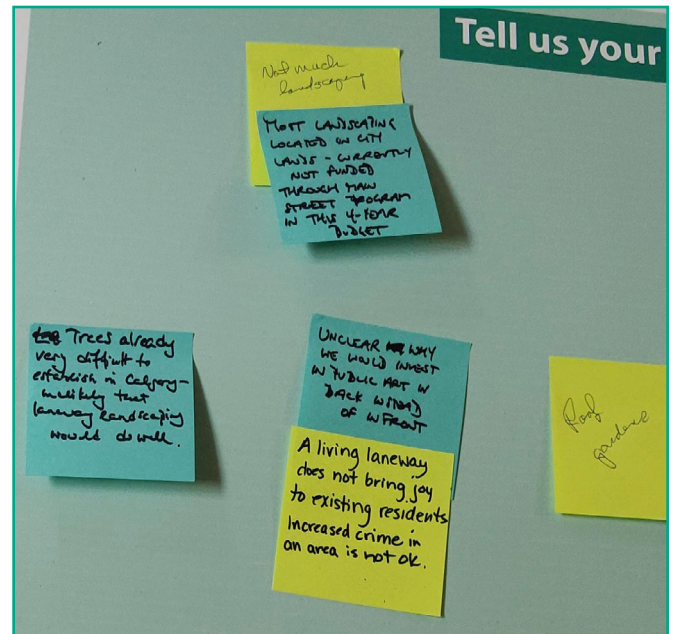 Tell us your
Not much
landscaping
MOST LANDSCAPING
LOCATED ON CITY
LANDS - CURRENTLY
NOT FUNDED
THROUGH MAIN
STREET PROGRAM
IN THIS 4-YEAR
BUDGET
Trees already
very difficult to
establish in Calgary-
unlikely that
laneway landscaping
would do well.
UNCLEAR WHY
WE WOULD INVEST
IN PUBLIC ART IN
BACK INSTEAD
OF IN FRONT
A living laneway
does not bring joy
to existing residents
Increased crime in
an area is not ok.
Roof
gardens